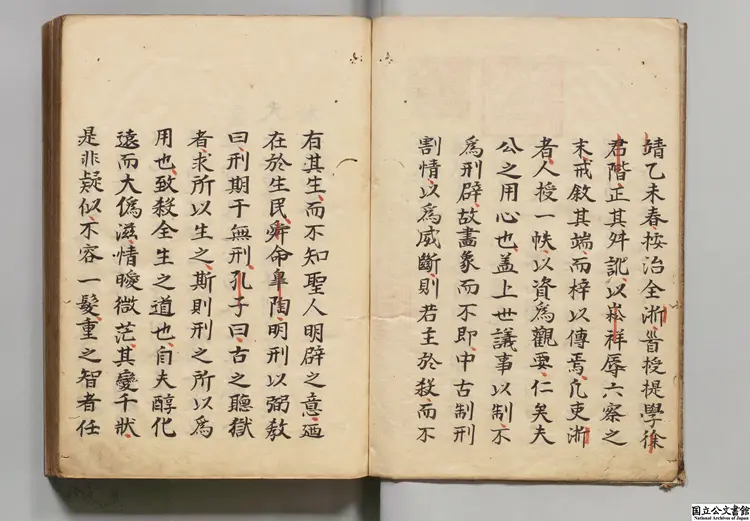 靖乙未春按治全浙首授提學徐
君階正其舛訛以崧祥辱六察之
末戒敘其端而梓以傳焉凡吏浙
者人授一帙以資為觀要仁矣夫
公之用心也盖上世議事以制不
為刑辟故畫象而不即中古制刑
割情以為威斷則若主於殺而不
有其生而不知聖人明辟之意迺
在於生民舜命皐陶明刑以弼敎
曰刑期于無刑孔子曰古之聽獄
者求所以生之斯則刑之所以為
用也致殺全生之道也自夫醇化
遠而大偽滋情曖微茫其變千狀
是非疑似不容一髮重之智者任
国立公文書館
National Archives of Japan